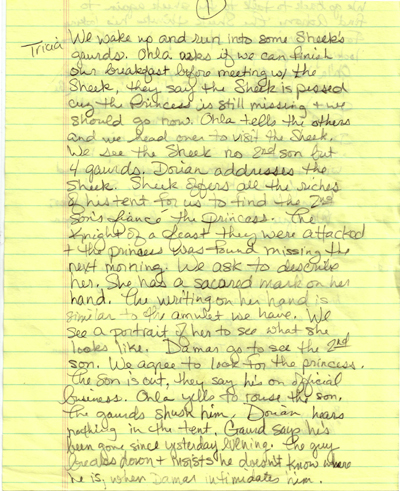 1
Tricia
We wake up and run into some Sheek's
gaurds. Ohla asks if we can finish
our breakfast before meeting w/ the
Sheek, they say the Sheek is pissed
cuz the Princess is still missing + we
should go now. Ohla tells the others
and we head over to visit the Sheek.
We see the Sheek no 2nd son but
4 gaurds. Dorian addresses the
Sheek. Sheek offers all the riches
of his tent for us to find the 2nd
Son's fiancé the princess. The
Knight of a feast they were attacked
+ the princess was found missing the
next morning. We ask to describe
her. She has a sacared mark on her
hand. The writing on her hand is
similar to the amulet we have. We
see a portrait of her to see what she
looks like. Damar go to see the 2nd
son. We agree to look for the princess.
The son is out, they say he's on official
business. Ohla yells to rouse the son.
The gaurds shush him. Dorian hears
nothing in the tent. Gaurd says he's
been gone since yesterday evening. The guy
breaks down + insists he doesn't know where
he is, when Damar intimidates him.